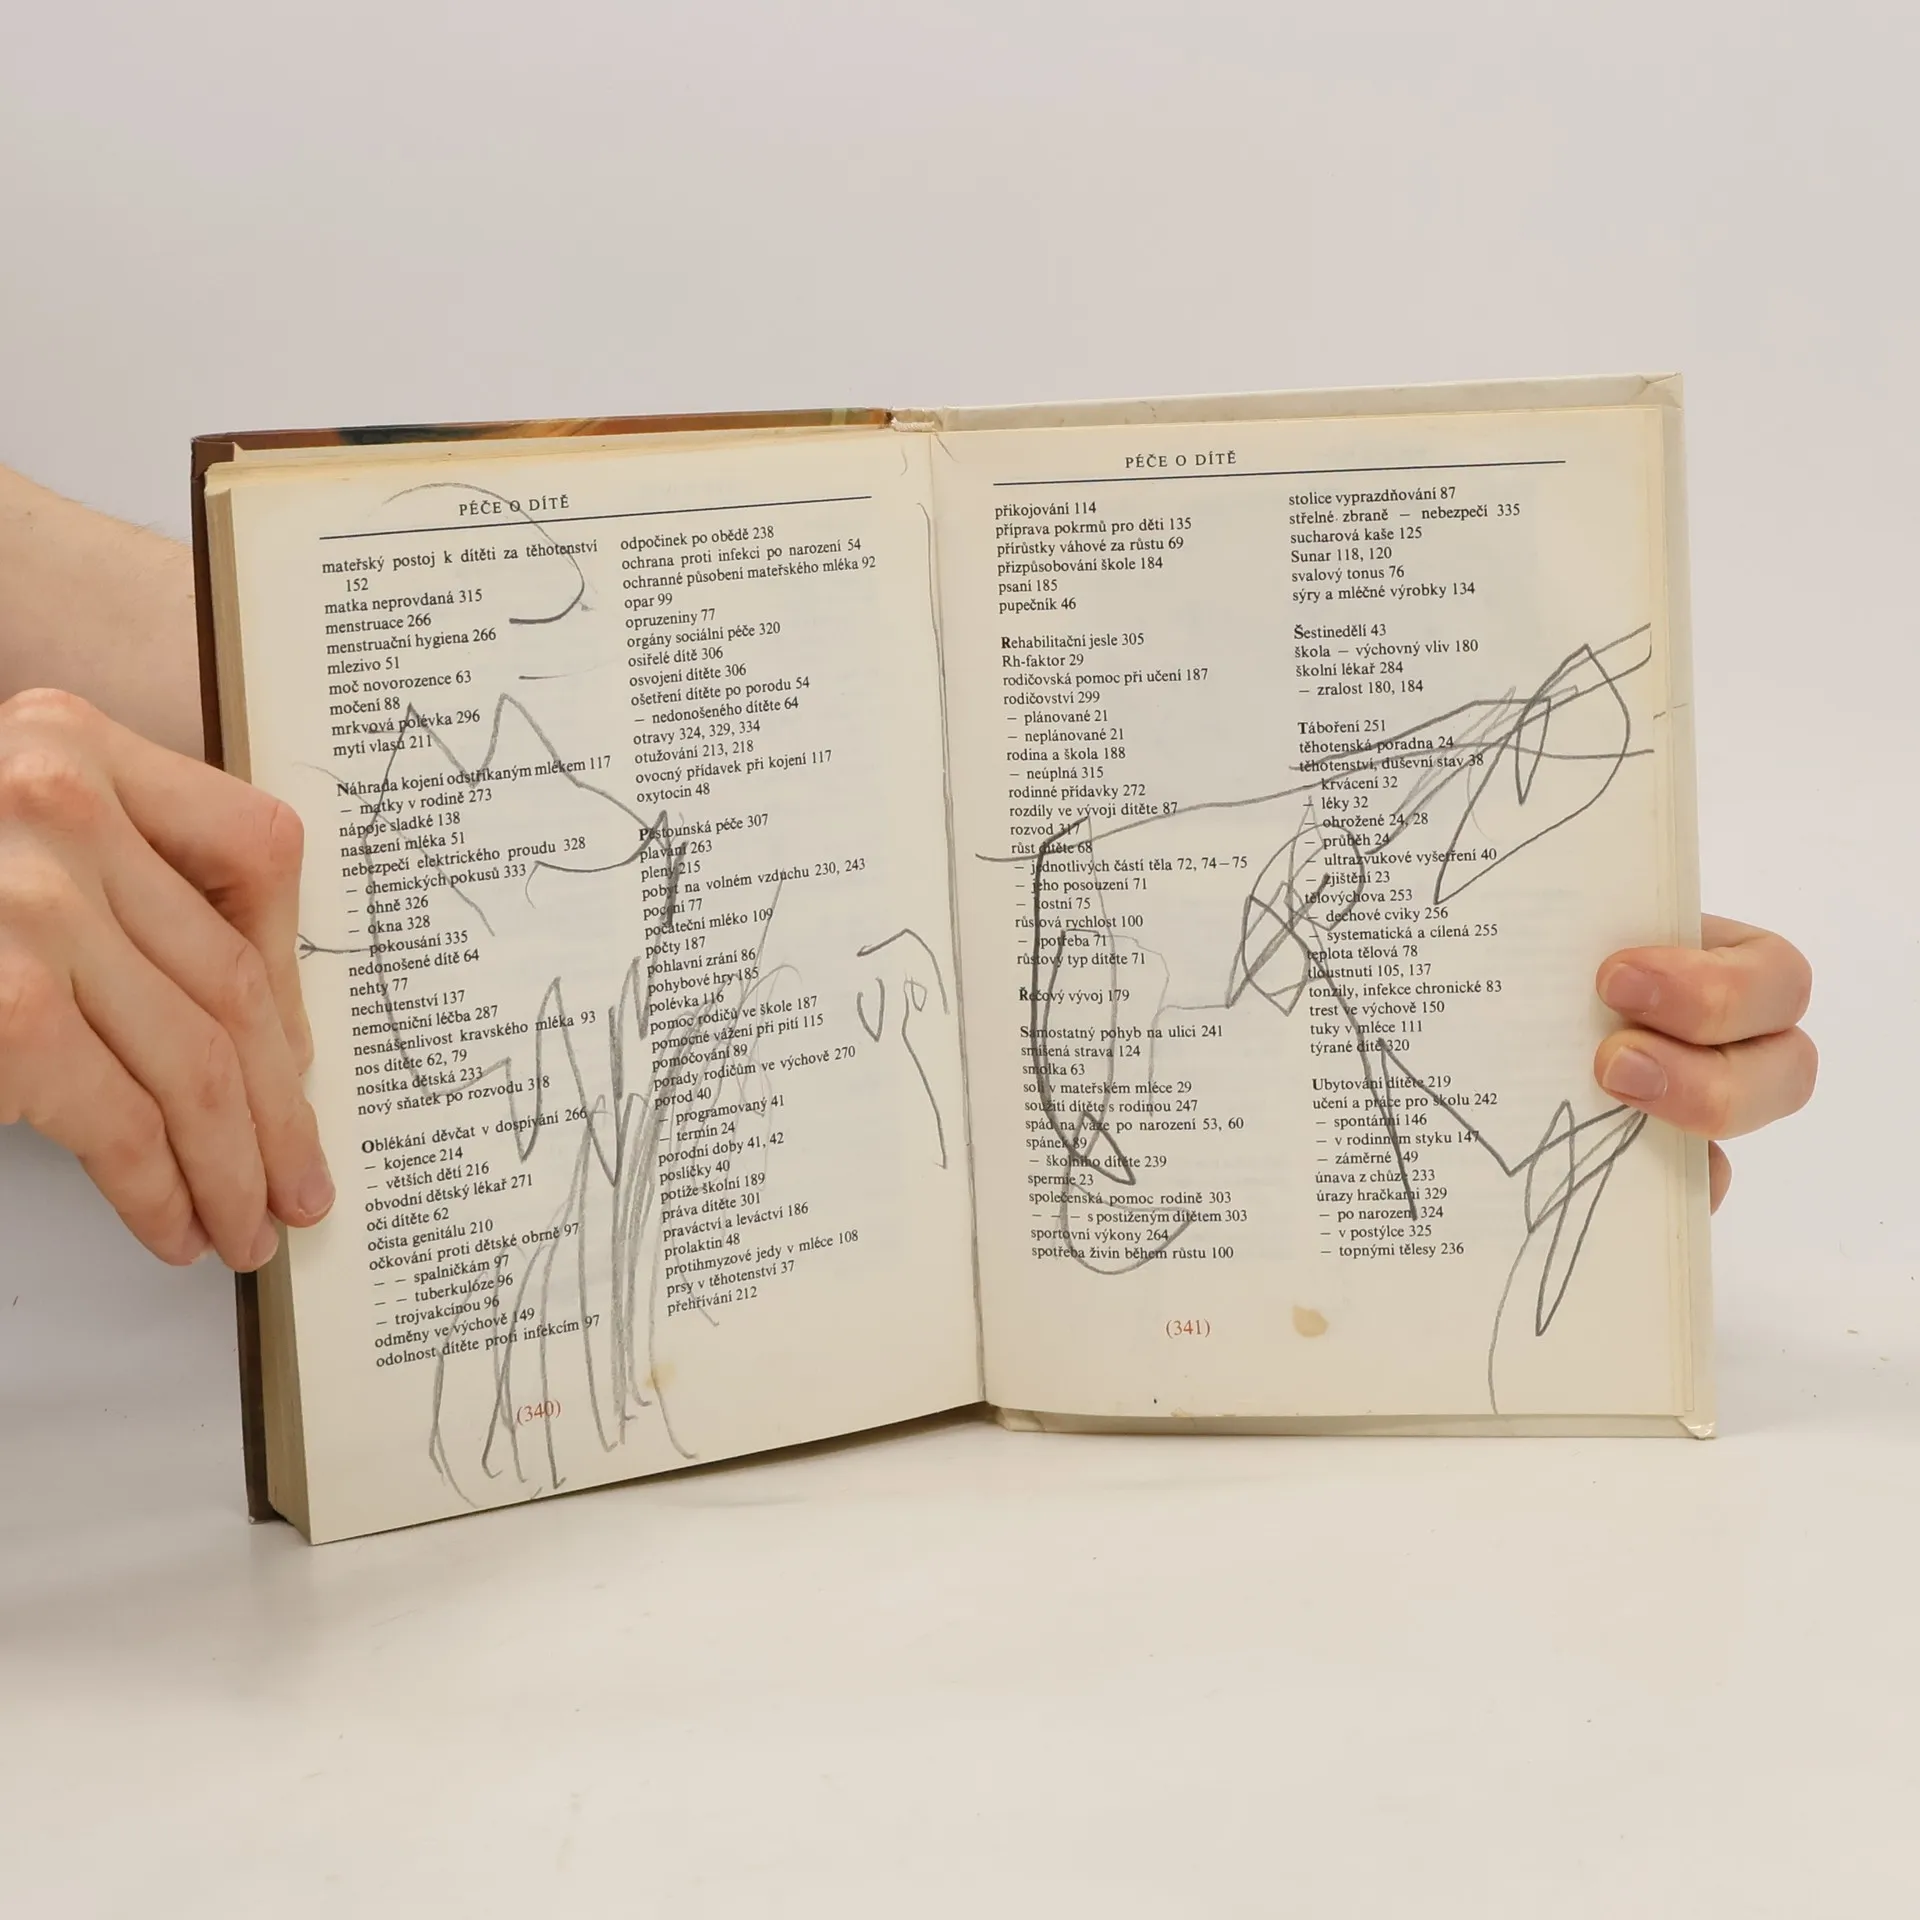 PÉČE O DÍTĚ
mateřský postoj k dítěti za těhotenství
152
matka neprovdaná 315
menstruace 266
menstruační hygiena 266
mlezivo 51
moč novorozence 63
močení 88
mrkvová polévka 296
mytí vlasů 211
Náhrada kojení odstříkaným mlékem 117
– matky v rodině 273
nápoje sladké 138
nasazení mléka 51
nebezpečí elektrického proudu 328
– chemických pokusů 333
– ohně 326
– okna 328
– pokousání 335
nedonošené dítě 64
nehty 77
nechutenství 137
nemocniční léčba 287
nesnášenlivost kravského mléka 93
nos dítěte 62, 79
nosítka dětská 233
nový sňatek po rozvodu 318
Oblékání děvčat v dospívání 266
– kojence 214
– větších dětí 216
obvodní dětský lékař 271
oči dítěte 62
očista genitálu 210
očkování proti dětské obrně 97
– – spalničkám 97
– – tuberkulóze 96
– trojvakcínou 96
odměny ve výchově 149
odolnost dítěte proti infekcím 97
odpočinek po obědě 238
ochrana proti infekci po narození 54
ochranné působení mateřského mléka 92
opar 99
opruzeniny 77
orgány sociální péče 320
osiřelé dítě 306
osvojení dítěte 306
ošetření dítěte po porodu 54
– nedonošeného dítěte 64
otravy 324, 329, 334
otužování 213, 218
ovocný přídavek při kojení 117
oxytocin 48
Pěstounská péče 307
plavání 263
pleny 215
pobyt na volném vzduchu 230, 243
pocení 77
počáteční mléko 109
počty 187
pohlavní zrání 86
pohybové hry 185
polévka 116
pomoc rodičů ve škole 187
pomocné vážení při pití 115
pomočování 89
porady rodičům ve výchově 270
porod 40
– programovaný 41
– termín 24
porodní doby 41, 42
poslíčky 40
potíže školní 189
práva dítěte 301
praváctví a leváctví 186
prolaktin 48
protihmyzové jedy v mléce 108
prsy v těhotenství 37
přehřívání 212
(340)
PÉČE O DÍTĚ
přikojování 114
příprava pokrmů pro děti 135
přírůstky váhové za růstu 69
přizpůsobování škole 184
psaní 185
pupečník 46
Rehabilitační jesle 305
Rh-faktor 29
rodičovská pomoc při učení 187
rodičovství 299
– plánované 21
– neplánované 21
rodina a škola 188
– neúplná 315
rodinné přídavky 272
rozdíly ve vývoji dítěte 87
rozvod 317
růst dítěte 68
– jednotlivých částí těla 72, 74–75
– jeho posouzení 71
– kostní 75
růstová rychlost 100
– spotřeba 71
růstový typ dítěte 71
Řečový vývoj 179
Samostatný pohyb na ulici 241
smíšená strava 124
smolka 63
soli v mateřském mléce 29
soužití dítěte s rodinou 247
spád na váze po narození 53, 60
spánek 89
– školního dítěte 239
spermie 23
společenská pomoc rodině 303
– – – s postiženým dítětem 303
sportovní výkony 264
spotřeba živin během růstu 100
stolice vyprazdňování 87
střelné zbraně – nebezpečí 335
sucharová kaše 125
Sunar 118, 120
svalový tonus 76
sýry a mléčné výrobky 134
Šestinedělí 43
škola – výchovný vliv 180
školní lékař 284
– zralost 180, 184
Táboření 251
těhotenská poradna 24
těhotenství, duševní stav 38
– krvácení 32
– léky 32
– ohrožené 24, 28
– průběh 24
– ultrazvukové vyšetření 40
– zjištění 23
tělovýchova 253
– dechové cviky 256
– systematická a cílená 255
teplota tělová 78
tloustnutí 105, 137
tonzily, infekce chronické 83
trest ve výchově 150
tuky v mléce 111
týrané dítě 320
Ubytování dítěte 219
učení a práce pro školu 242
– spontánní 146
– v rodinném styku 147
– záměrné 149
únava z chůze 233
úrazy hračkami 329
– po narození 324
– v postýlce 325
– topnými tělesy 236
(341)